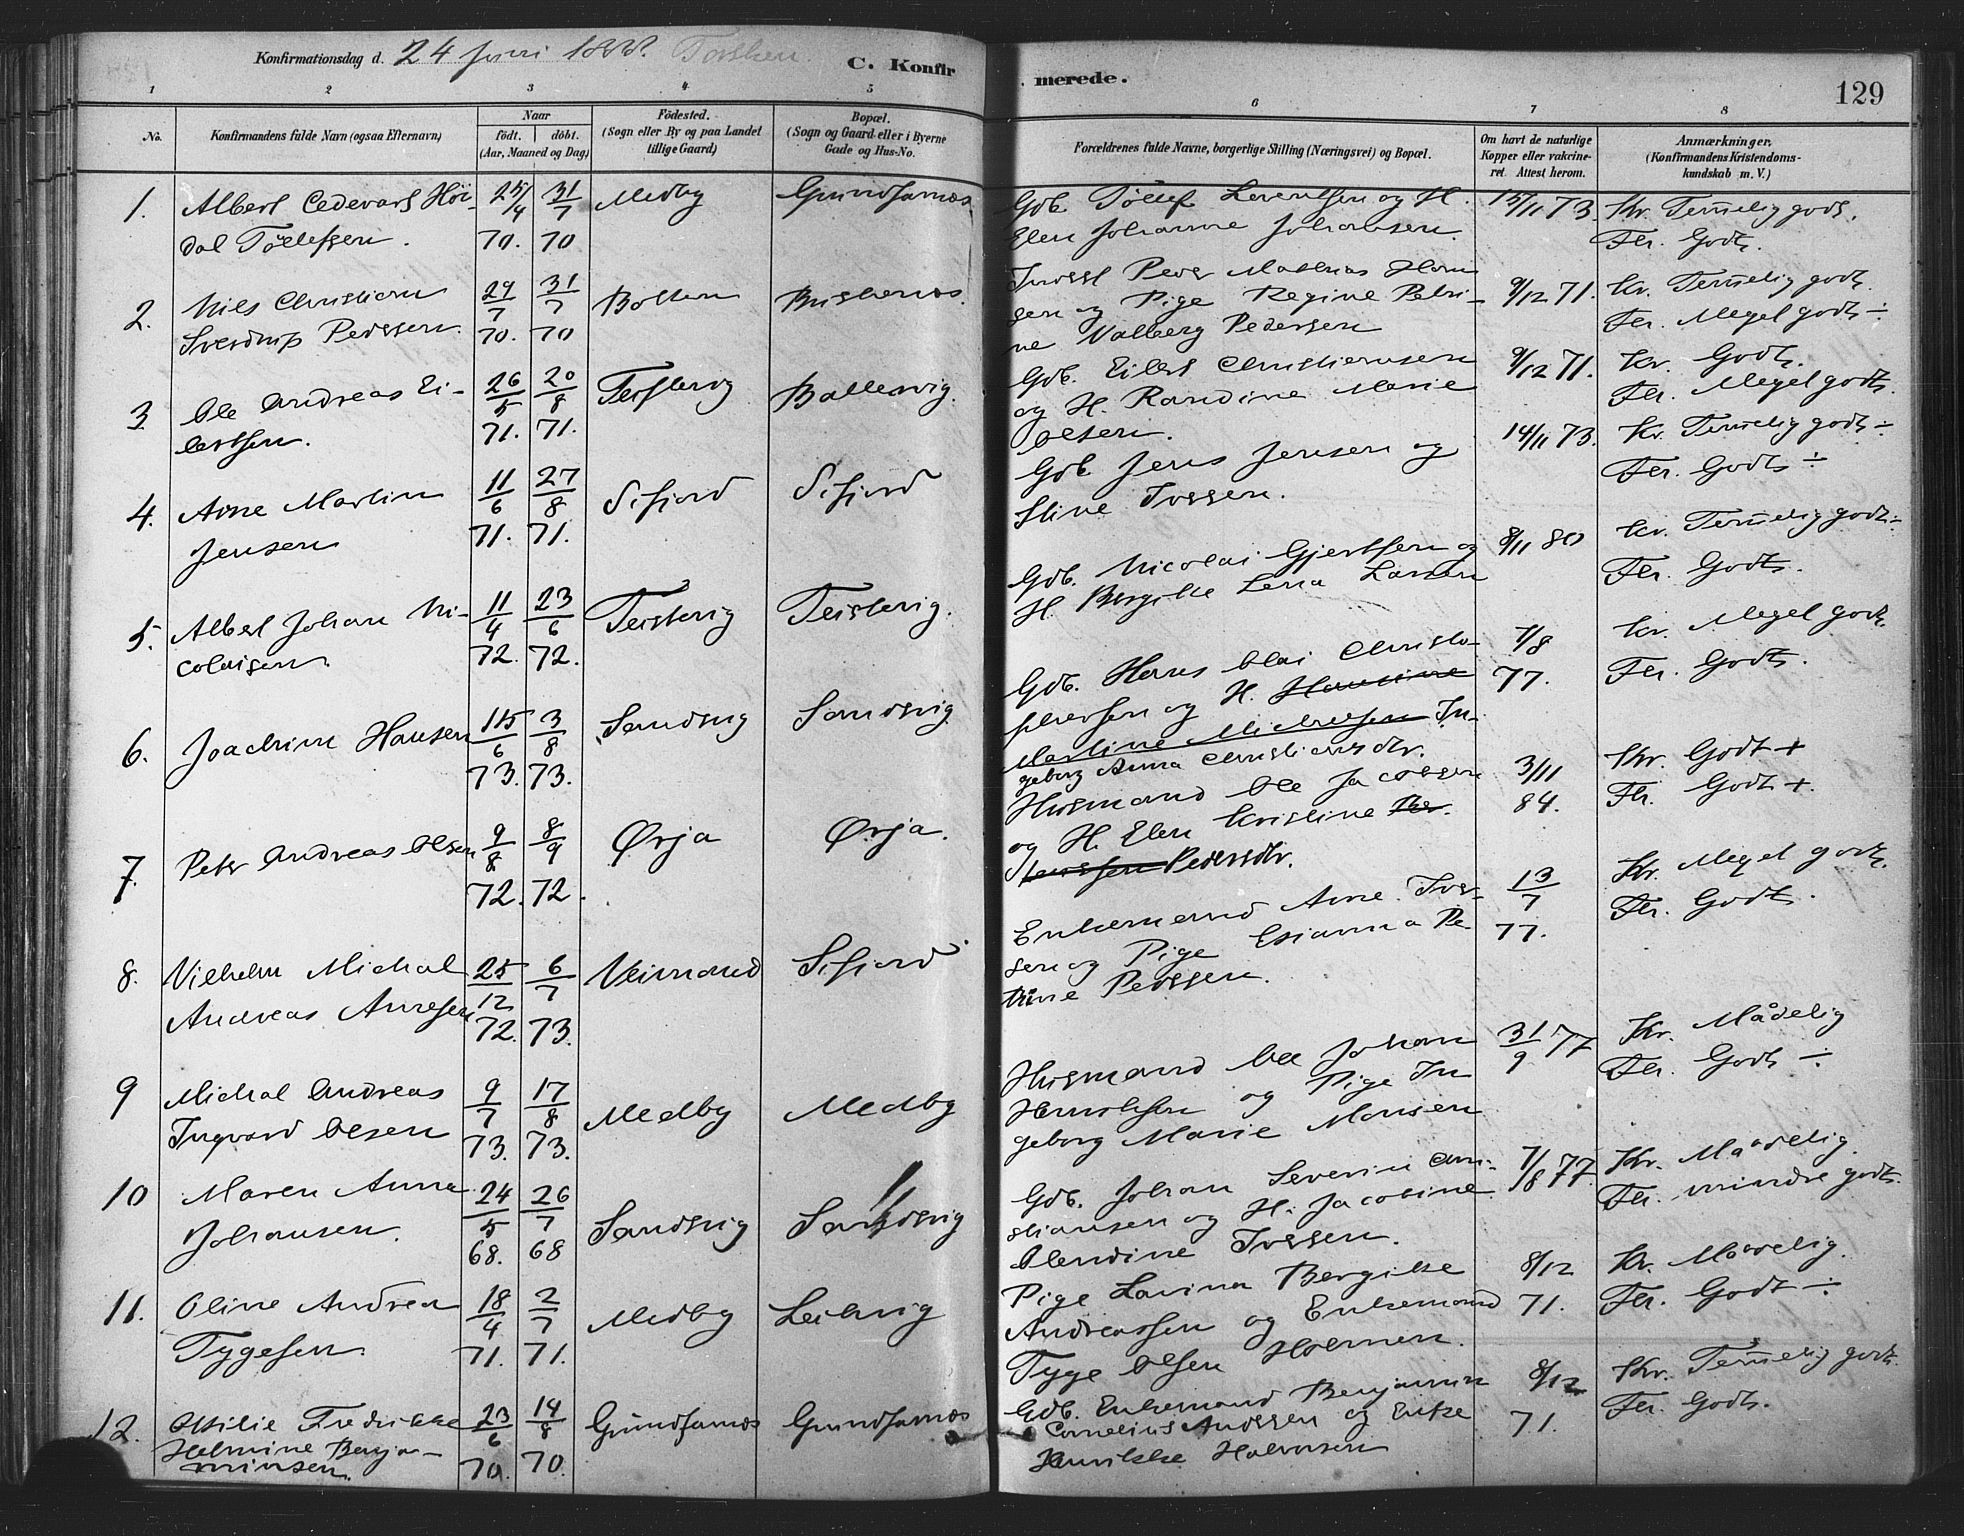 Konfirmationsdag d. 24 Juni 1888. Torsken.
C. Konfirmerede.
129
1 2 3 4 5 6 7 8
No.
Konfirmandens fulde Navn (ogsaa Efternavn)
Naar
födt. döbt.
(Aar, Maaned og Dag)
Födested.
(Sogn eller By og paa Landet
tillige Gaard)
Bopæl.
(Sogn og Gaard eller i Byerne
Gade og Hus-No.
Forældrenes fulde Navne, borgerlige Stilling (Næringsvei) og Bopæl.
Om havt de naturlige
Kopper eller vakcine-
ret. Attest herom.
Anmærkninger.
(Konfirmandens Kristendoms-
kundskab m. V.)
1. Albert Edevart Höi- 25/4 31/7 Medby Grundfarnes
dal Töllefsen. 70. 70
Gdb. Töllef Lorentsen og H. 15/11 73. Kr. Temmelig godt.
Elen Johanne Johansen. Fl. Godt.
2. Nils Christian 29/7 31/7 Botten
Sverdrup Pedersen. 70. 70
Peder Mathias Han
sen og Pige Regine Petri- 9/12 71. Kr. Temmelig godt.
ne Valberg Pedersen Fl. Meget godt ÷
3. Ole Andreas Ei- 26/5 20/8 Teistevig Ballesvig.
lertsen. 71. 71.
Gdb. Eilert Christiansen 9/12 71. Kr. Godt.
og H. Randine Marie Fl. Meget godt.
Olsen.
4. Arne Martin 11/6 27/8 Sifjord Sifjord
Jensen 71. 71.
Gdb. Jens Jensen og 14/11 73. Kr. Temmelig godt ÷
Stine Iversen. Fl. Godt ÷
5. Albert Johan Ni- 11/4 23/6 Teistevig Teistevig.
colaisen. 72. 72.
Gdb. Nicolai Gjertsen og 8/11 80 Kr. Temmelig godt ÷
H. Bergitte Lena Larsen Fl. Godt.
6. Joachim Hansen 15/6 3/8 Sandvig Sandvig
73. 73.
Gdb. Hans Olai Christo- 7/8 Kr. Meget godt.
phersen og H. Hansine 77. Fl. Godt.
Martine Michelsen In-
geborg Anna Christiansdtr.
7. Peter Andreas Olsen 9/8 8/9 Ørja Ørja.
72. 72.
Husmand Ole Jacobsen 3/11 Kr. Godt +
og H. Elen Kristine 84. Fl. Godt +
Pedersdtr.
8. Vilhelm Michal 25/12 6/7 Veimand Sifjord
Andreas Arnesen 72. 73.
Enkemand Arne Iver- 13/7 Kr. Meget godt.
sen og Pige Esianna Pe 77. Fl. Godt.
trine Pedersen.
9 Michal Andreas 9/7 17/8 Medby Medby
Ingvard Olsen 73. 73.
Husmand Ole Johan 31/9 77 Kr. Mådelig
og Pige In Fl. Godt ÷
geborg Marie Hansen
10 Maren Anna 24/5 26/7 Sandsvig Sandsvig
Johansen. 68. 68
Gdb. Johan Severin Chri- 7/8 77. Kr. Maadelig.
stiansen og H. Jacobine Fl. mindre godt.
Olendine Iversen.
11. Oline Andrea 18/4 2/7 Medby Leikvig
Tygesen. 71. 71.
Pige Lavina Bergitte 8/12 Kr. Maadelig.
Andreassen og Enkemand 71. Fl. Godt ÷
Tyge Olsen Holmen.
12. Ottilie Fredrikke 23/6 14/8 Grundfarnes Grundfarnes
Helmine Benja- 70. 70.
minsen.
Gdb. Enkemand Benjamin 8/12 Kr. Temmelig godt.
Cornelius Andersen og Enke 71. Fl. Godt.
Henrikke Halvorsen